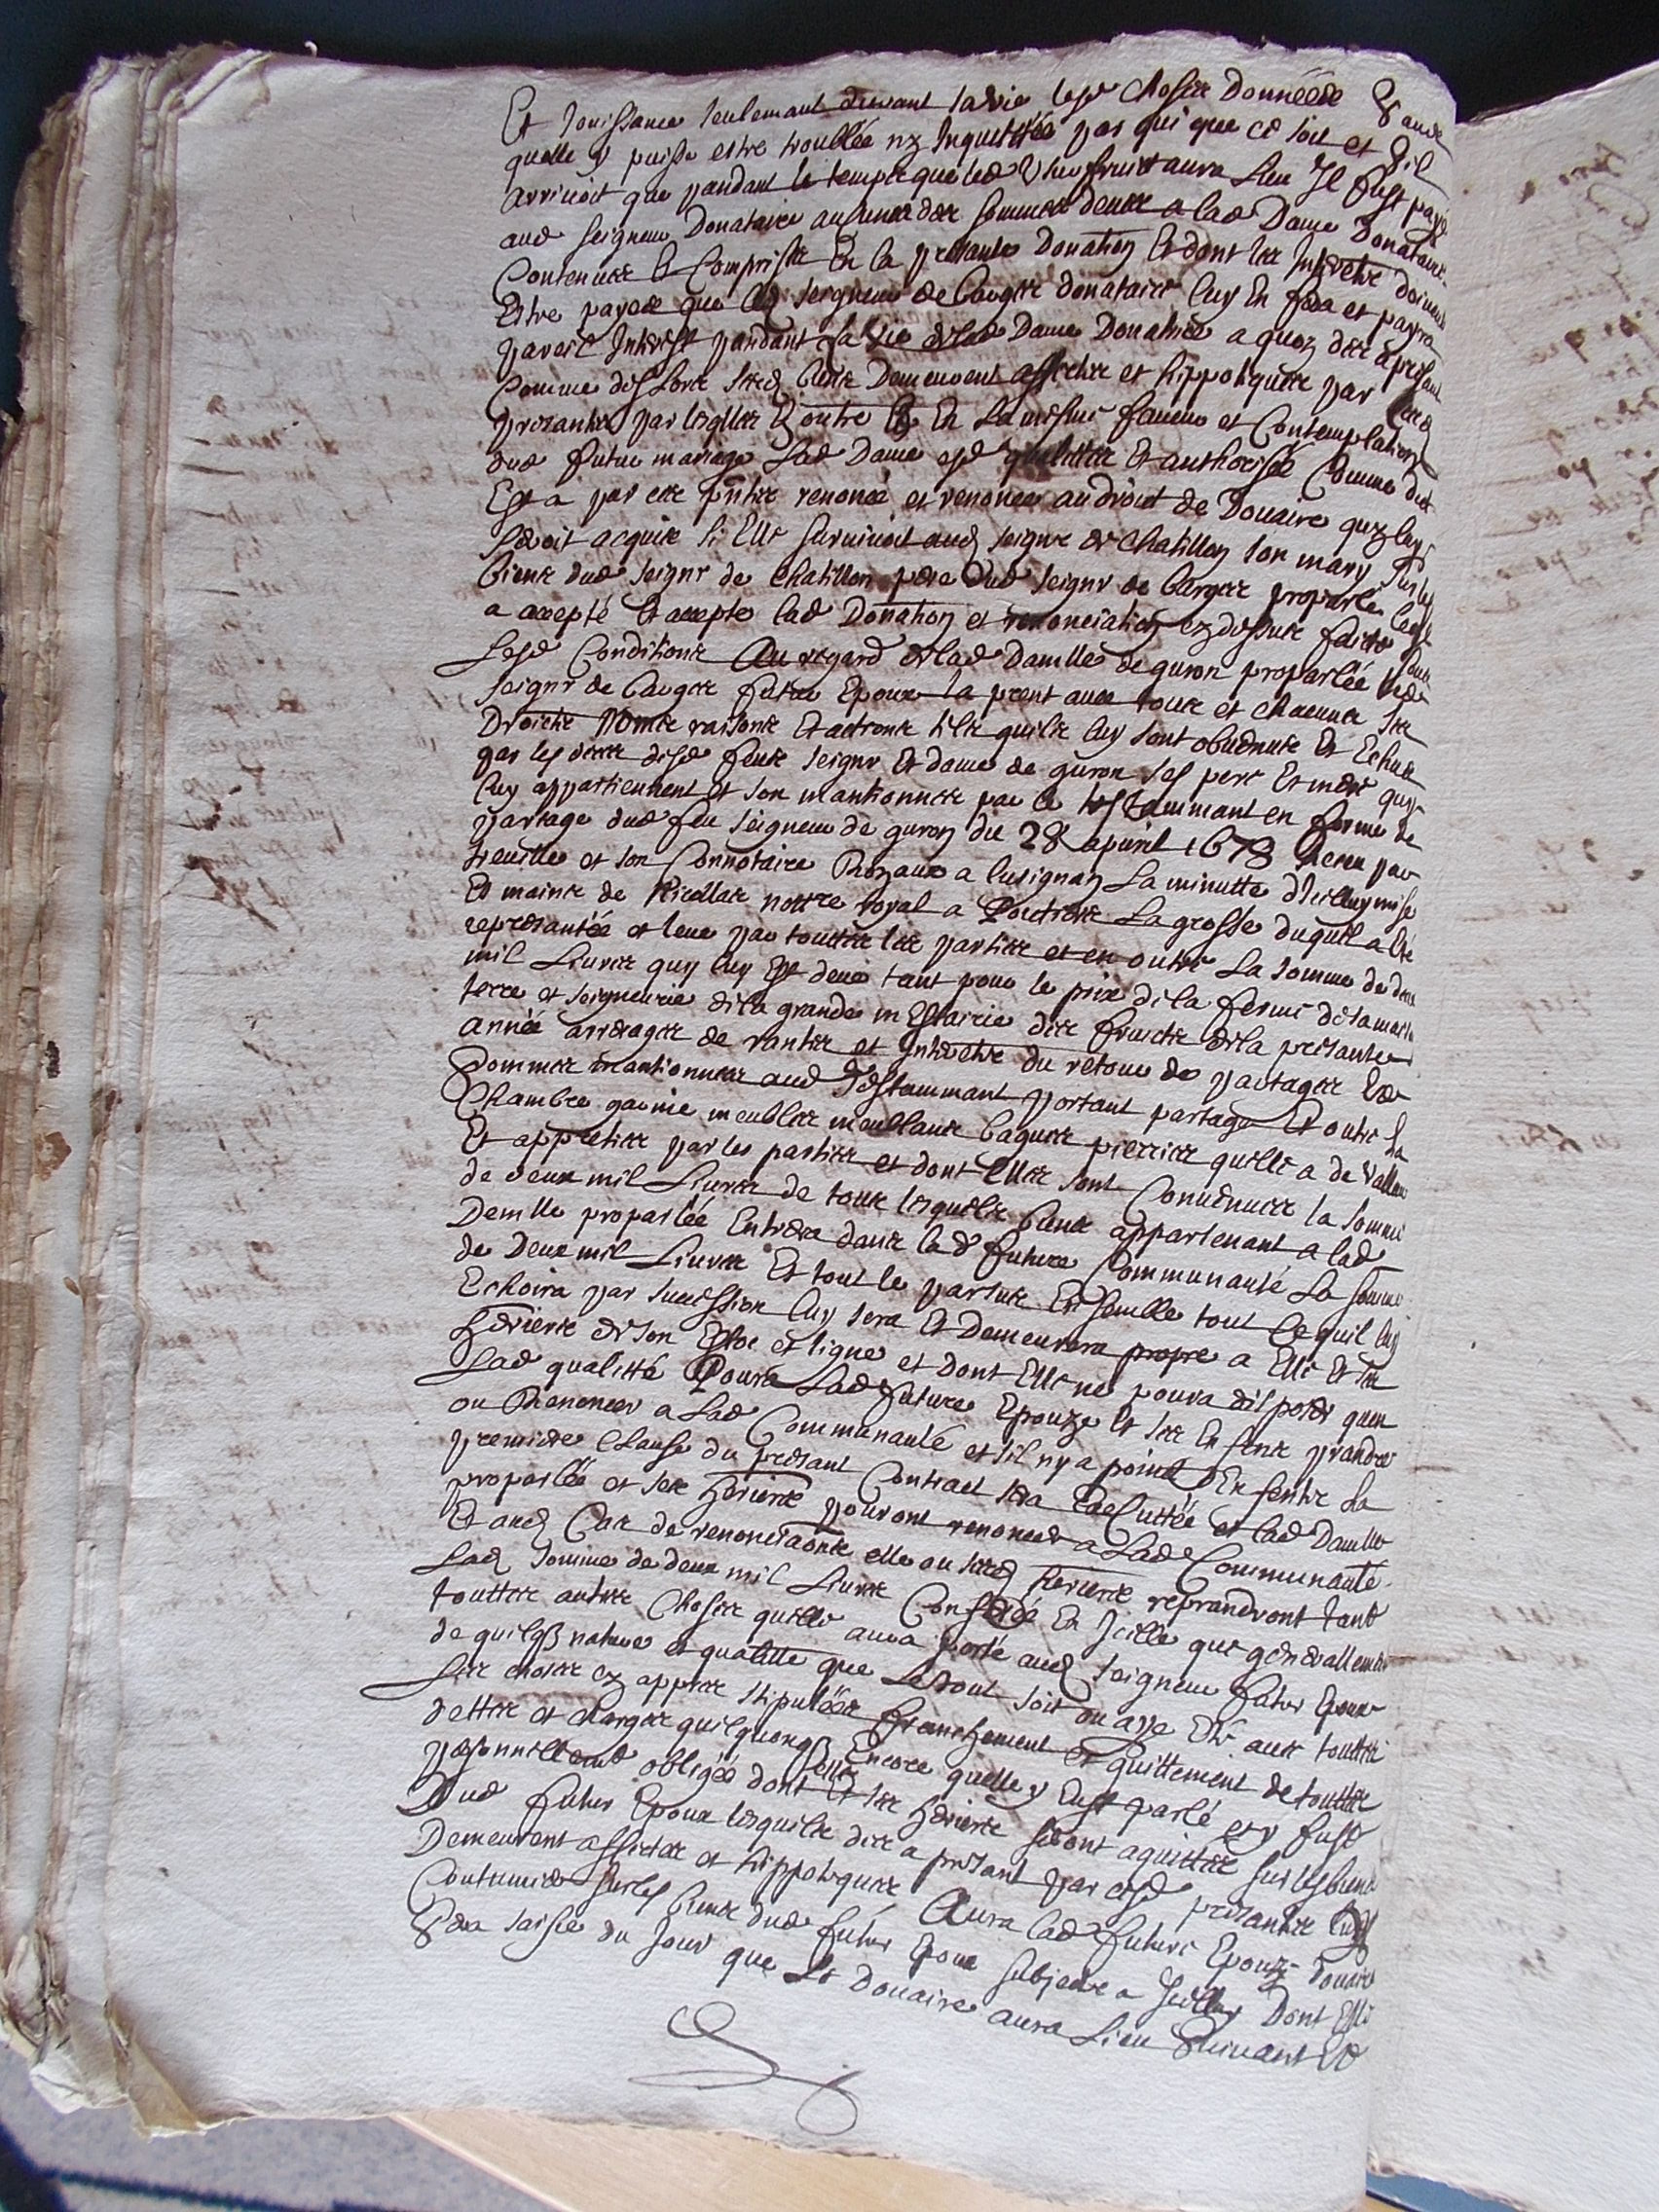 Et Jouissance seulemant durant sa vie lesd choses Donnéés Sans
quelle y puisse estre troublée ny Inquiettée par qui que ce soit et sil
arrivoit que pandant le temps que led Usufruit aura Lieu Il fust payé
aud seigneur Donataire aucunes des sommes deues a lad Dame Donatrice
Contenues Et Comprises En la presante Donation Et dont les Interets doivent
Estre payés que led seigneur de Bauges donataire luy En fera et payra
pareil Interest pandant la vie de lad Dame Donatrice a quoy des apresant
Comme des lors sesd biens Demeurent affectés et hippotqués par lesd
presantes par lesquelles Et outre Et En la mesme faveur et Contemplation
dud futur mariage Lad Dame esd qualittés Et authorisée Comme dit
Est a par ces pntes renoncé et renonce au droit de Douaire quy luy
seroit acquis si Elle survivoit aud seignr de Chatillon son mary sur les
biens dud seignr de Chatillon pere dud seignr de Bauges proparlé lequel
a accepté Et accepte lad Donation et renonciation cy dessus faicte sous
Lesd Conditions Au regard de lad Damlle de guron proparlée led
seignr de Bauges futur Epoux la prent avec tous et chacuns ses
Droicts Noms raisons Et actions tels quils luy sont obvenus Et Echus
par les deces desd feus seignr Et dame de guron ses pere Et mere quy
luy appartiennent et son mantionnés par le testammant en forme de
partage dud feu seigneur de guron du 28 apvril 1678 Receu par
treuille et son Connotaire Royaux a lusignan La minutte diceluy mise
Es mains de Ricellat nottre royal a Poictiers La grosse duquel a Eté
represantée et leue par touttes les parties et en outre La somme de deux
mil Livres quy luy Est deue tant pour le prix de la ferme de sa maison
terre et seigneurie de la grande mEstairie des fruicts de la presante
année arrerages de rantes et Interets du retour de partages Et
sommes mantionnées aud Testammant portant partage Et outre La
Chambre garnie meubles meublans bagues pierries quelle a de valleur
Et apprétiés par les parties et dont Elles sont Convenues la somme
de deux mil Livres de tous lesquels biens appartenant a lad
Demlle proparlée Entrera dans lad future Communauté La somme
de Deux mil Livres Et tout le parsus Ensemble tout ce quil luy
Echoira par succession luy sera Et Demeurera propre a Elle Et ses
herieres de son Estoc et ligne et dont Elle ne poura disposer quen
Lad qualitté Poura Lad future Epouze Et ses Enfens prandre
ou Renoncer a Lad Communauté et sil ny a point dEnfents La
premiere Clause du presant Contract sera Executtée et lad Damlle
proparlée et ses heriers pouront renoncer a Lad Communauté
Et aud Cas de renonciaons elle ou sesd heriers reprandront tant
Lad somme de deux mil Livres Conferée En Icelle que generallemant
touttes autres Choses quelle aura porté aud seigneur futur Epoux
de quelqs nature et qualitté que Lesdont soit ou aye Eté aux touttes
Les choses cy appres stipulées franchement et quittement de touttes
dettes et charges quelquonqs Encore quelle y Eust parlé et y fust
personnellemt obligée dont Elle et ses heriers seront aquittés sur les biens
Dud futur Epoux lesquels des a presant par cesd presantes luy
Demeurent affectés et hippotqués Aura lad future Epouze Douaire
Coutumier sur les biens dud futur Epoux subjects a Iceluy Dont Elle
Sera saisie du Jour que Le Douaire aura Lieu Suivant Et